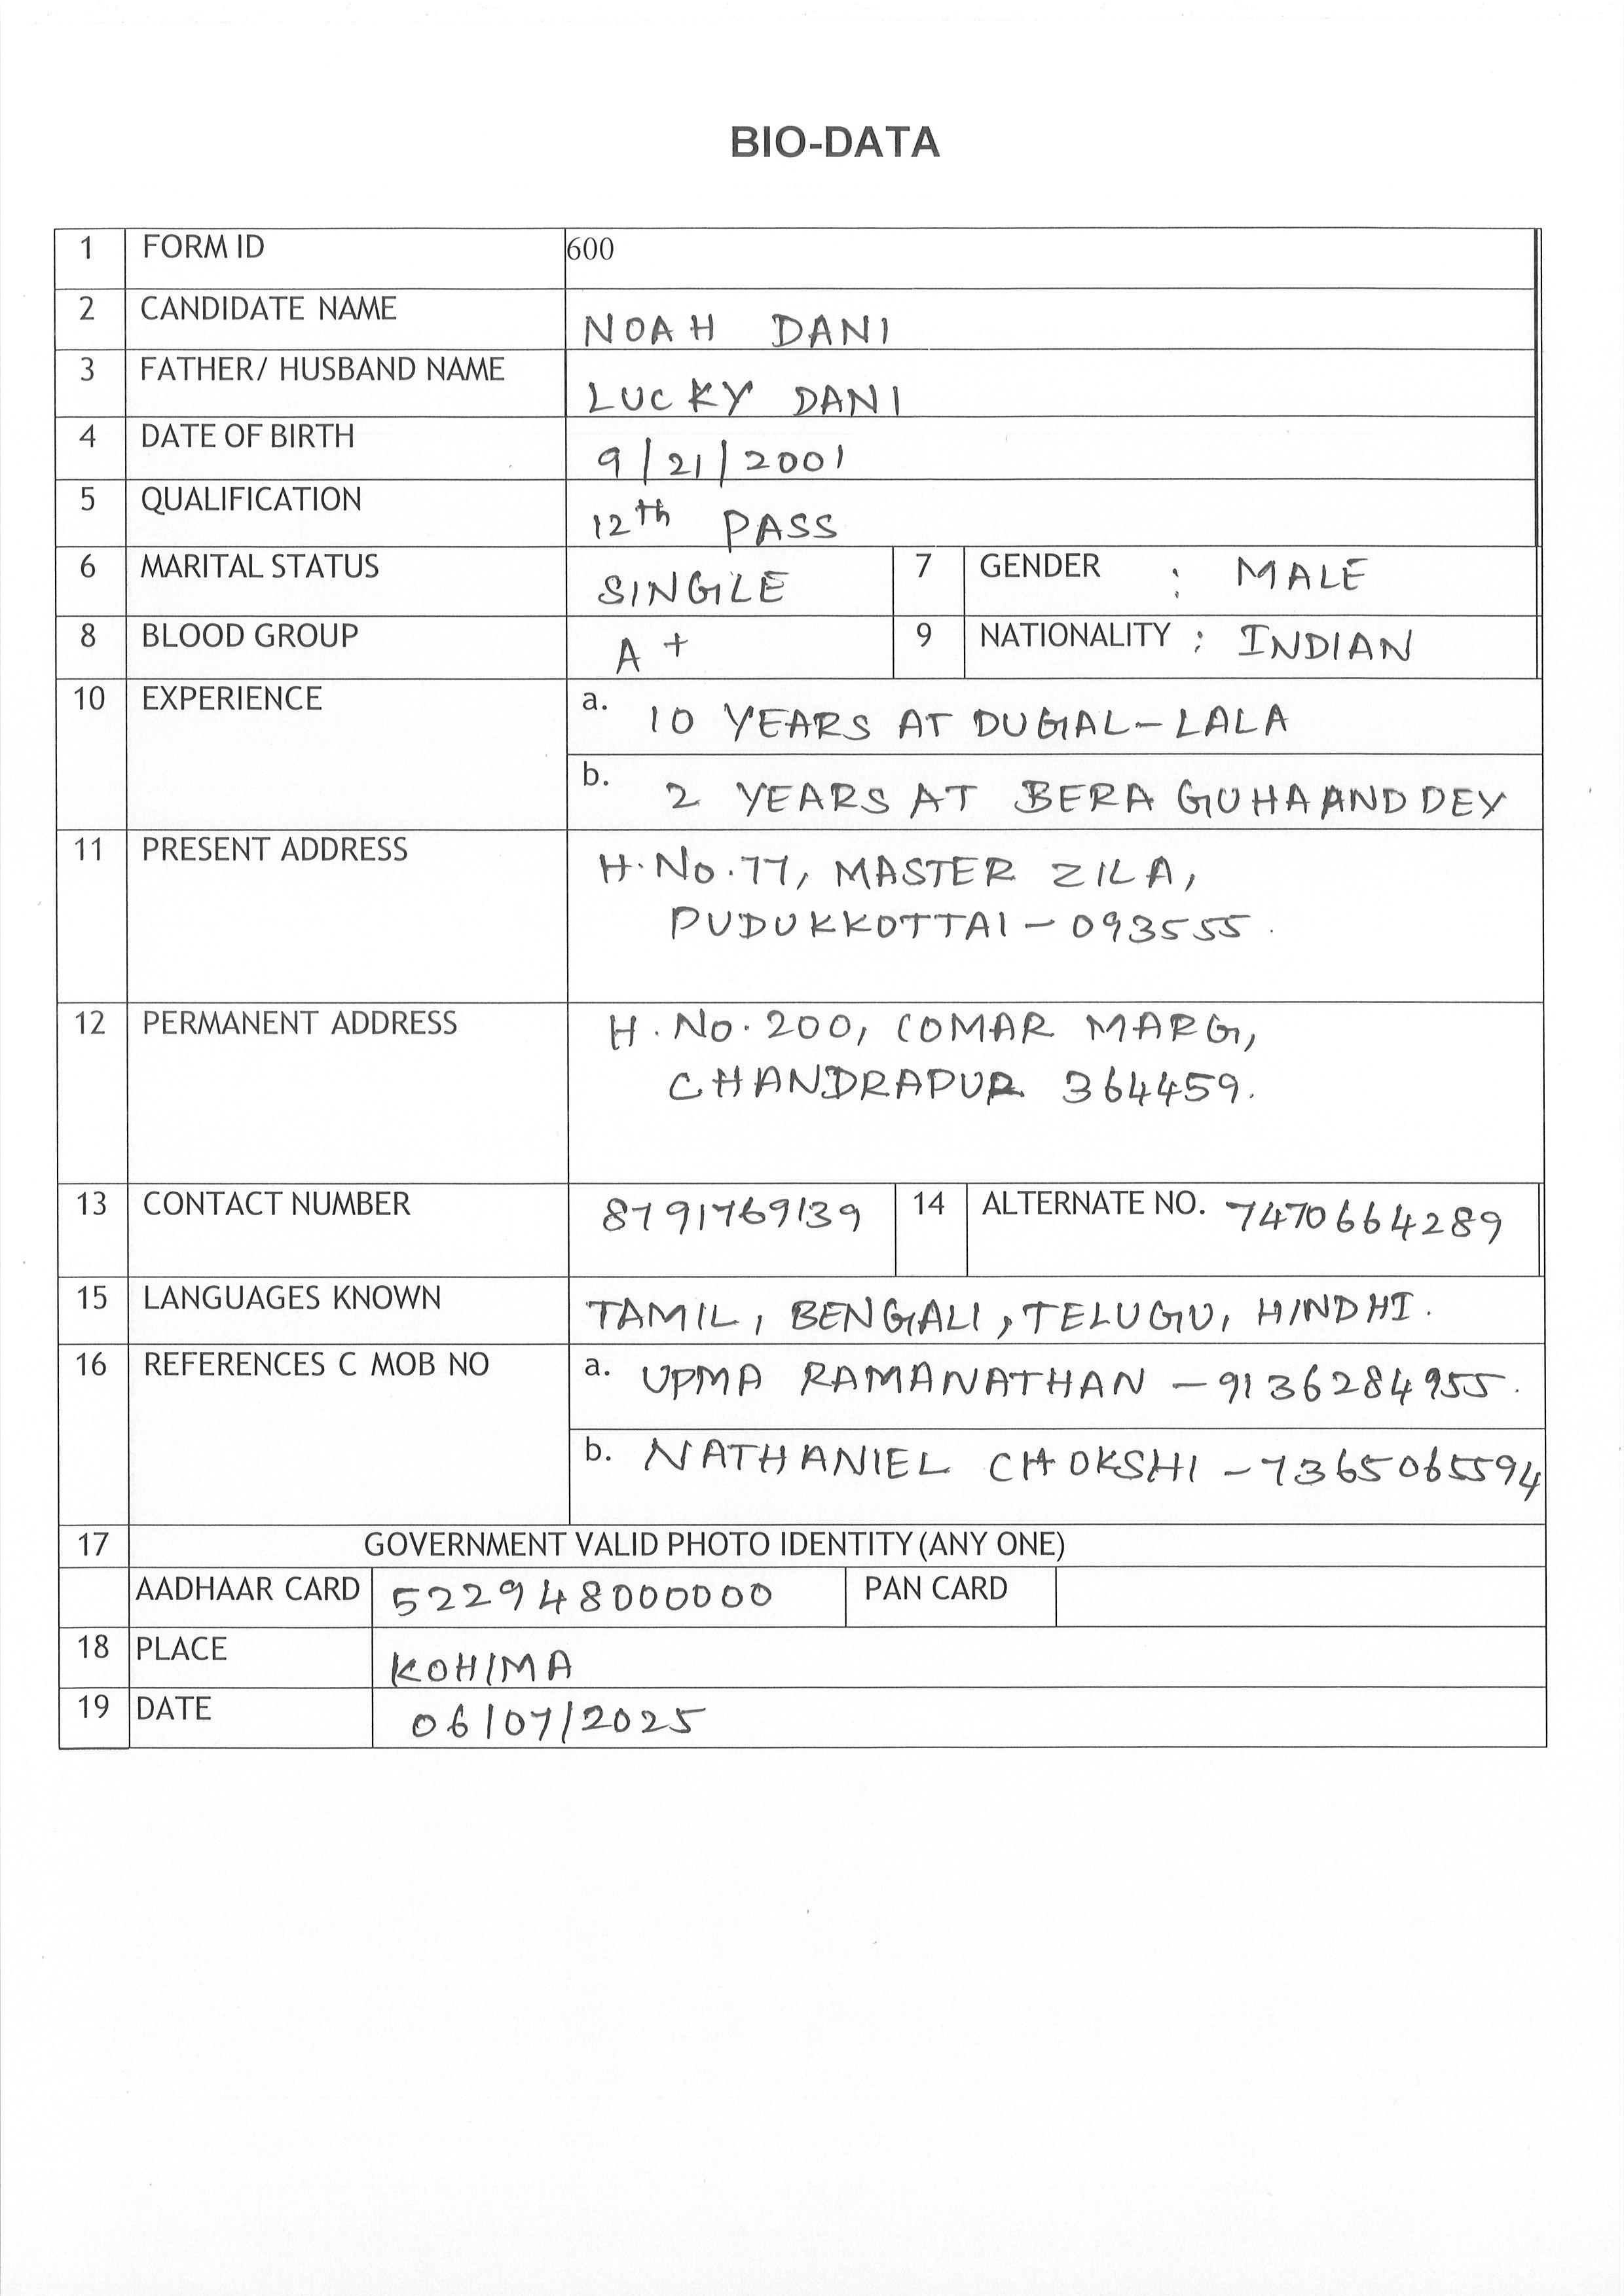 BIO-DATA
1 FORM ID 600
2 CANDIDATE NAME NOAH DANI
3 FATHER/ HUSBAND NAME LUCKY DANI
4 DATE OF BIRTH 9/21/2001
5 QUALIFICATION 12th PASS
6 MARITAL STATUS SINGLE 7 GENDER : MALE
8 BLOOD GROUP A+ 9 NATIONALITY : INDIAN
10 EXPERIENCE a. 10 YEARS AT DUGAL-LALA
b. 2 YEARS AT BERA GUHA AND DEY
11 PRESENT ADDRESS H.No.77, MASTER ZILA,
PUDUKKOTTAI - 093555.
12 PERMANENT ADDRESS H.No.200, COMAR MARG,
CHANDRAPUR 364459.
13 CONTACT NUMBER 8791769139 14 ALTERNATE NO. 7470664289
15 LANGUAGES KNOWN TAMIL, BENGALI, TELUGU, HINDHI.
16 REFERENCES C MOB NO a. UPMA RAMANATHAN - 9136284955.
b. NATHANIEL CHOKSHI - 7365065594
17 GOVERNMENT VALID PHOTO IDENTITY (ANY ONE)
AADHAAR CARD 522948000000 PAN CARD
18 PLACE KOHIMA
19 DATE 06/07/2025